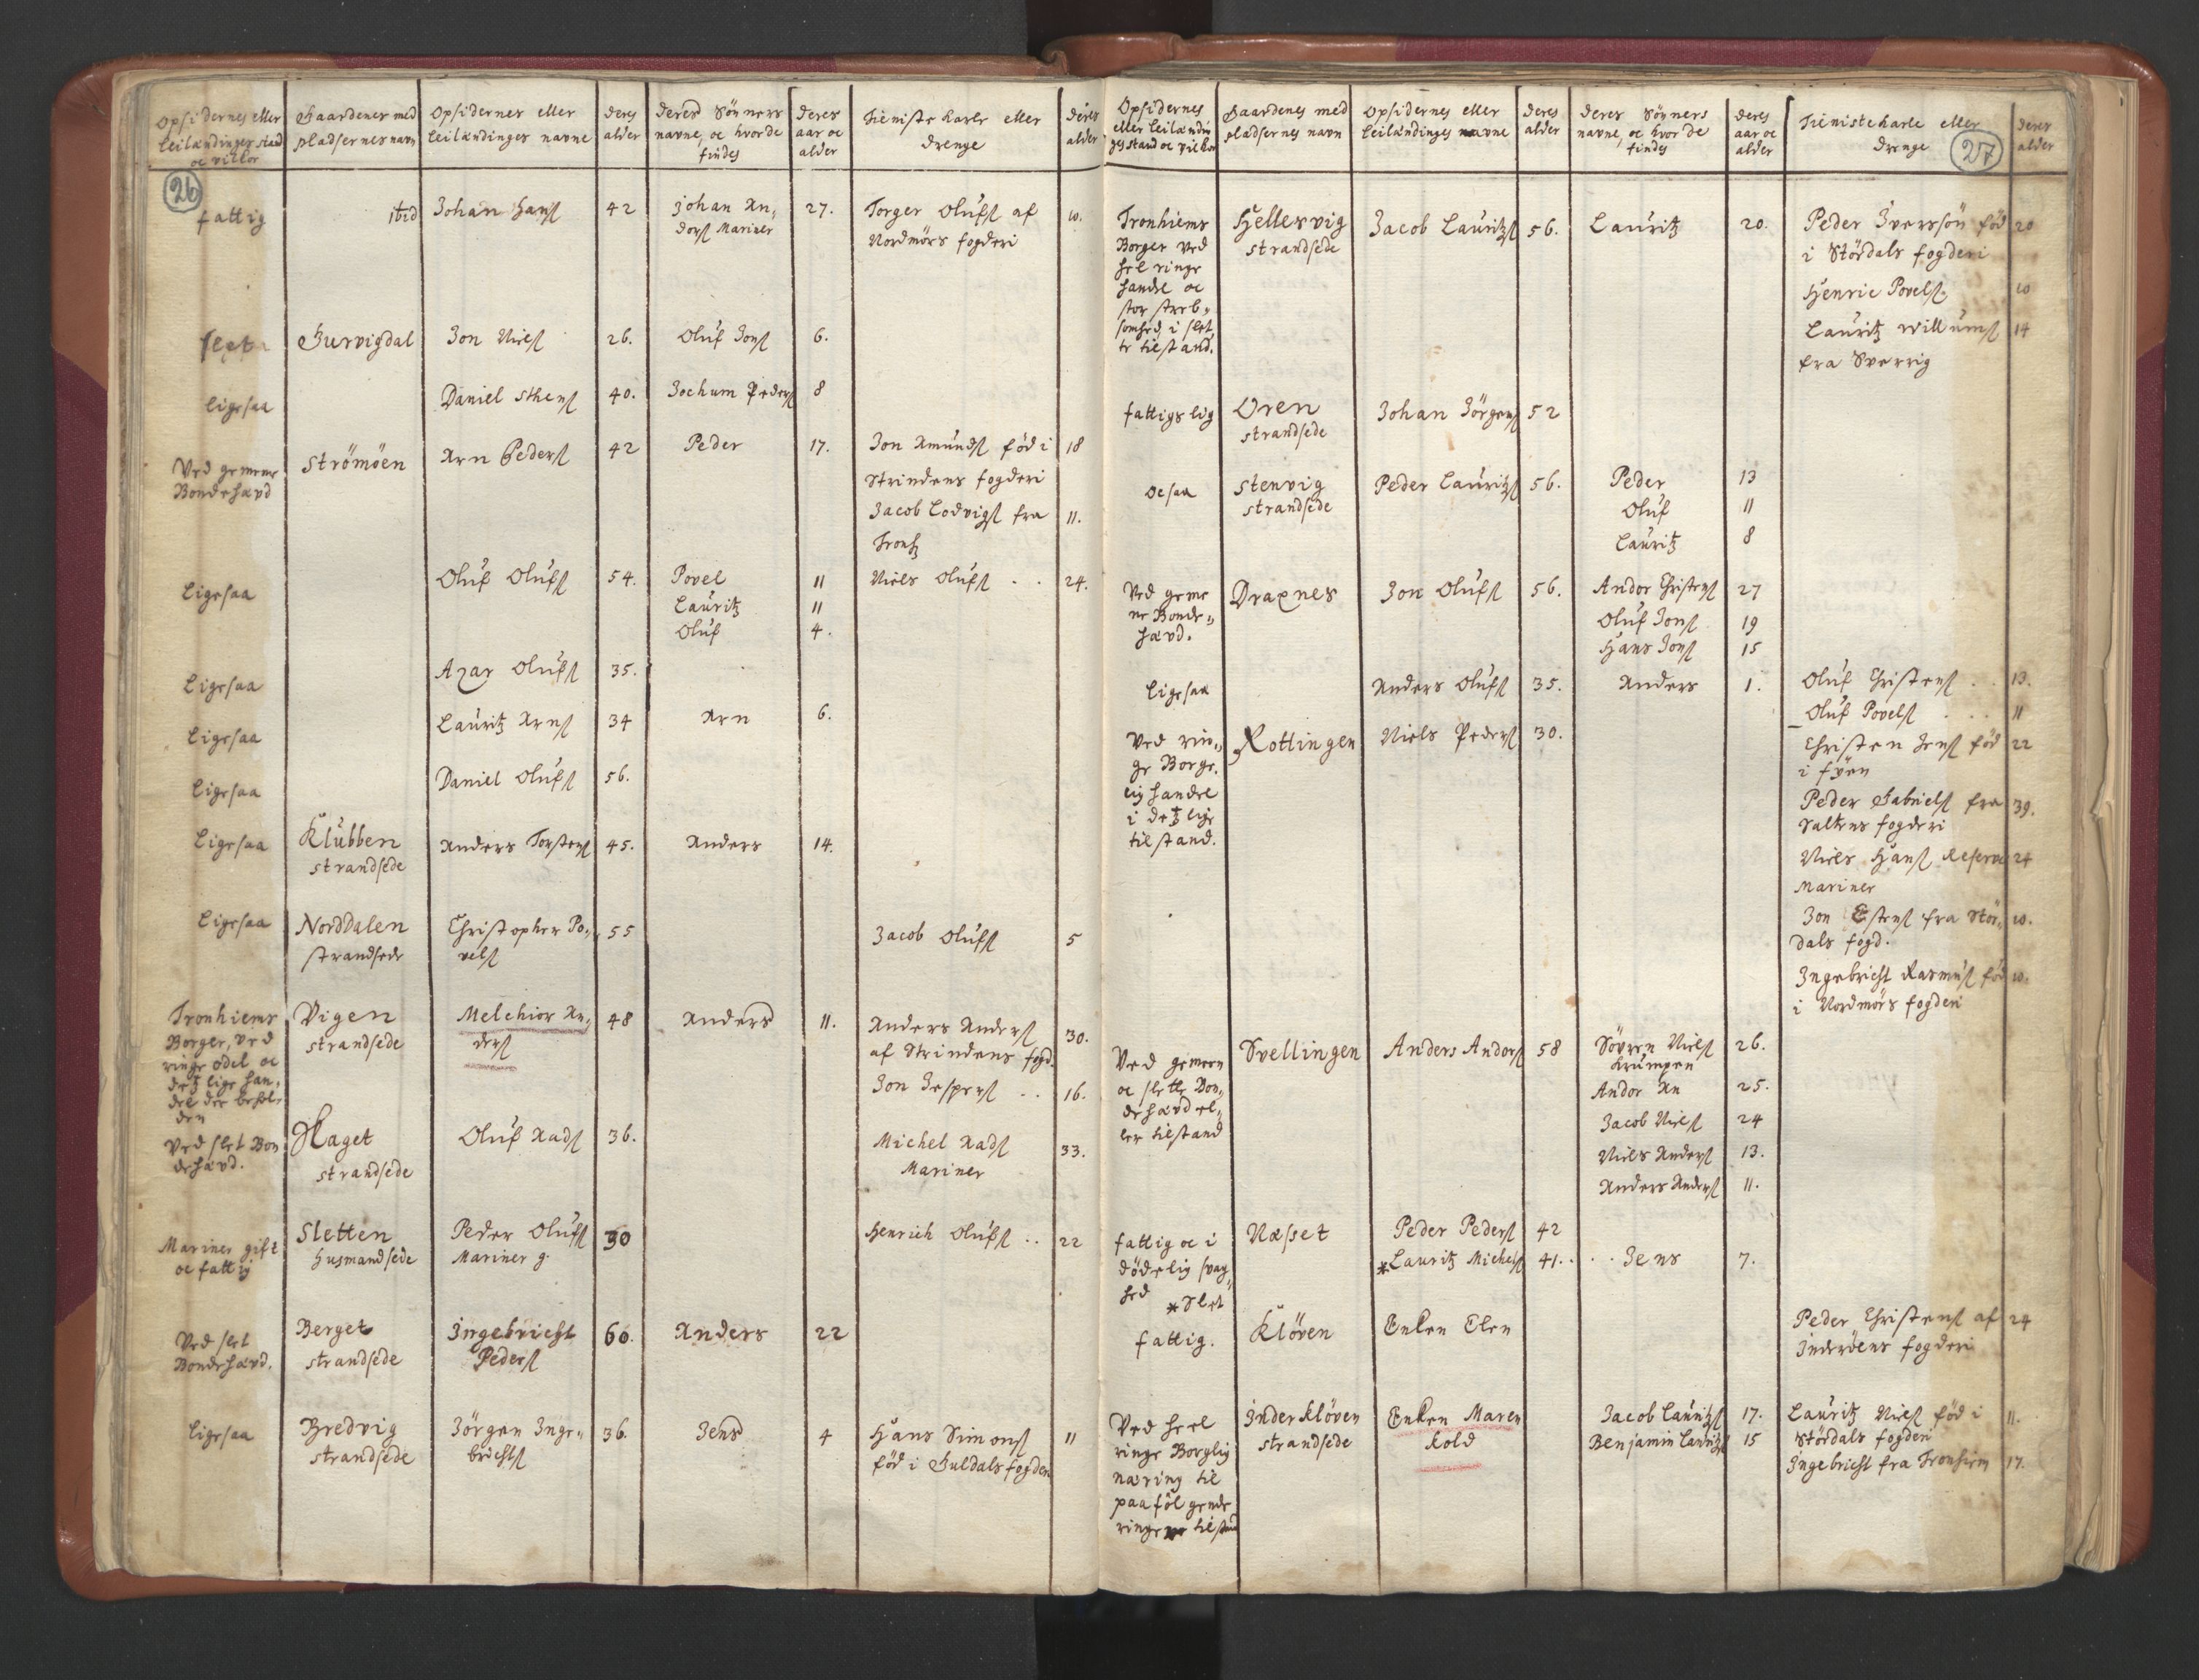 Opsidernes eller
leilændinges stand
oc vilkor
Gaardenes med
pladsernes navn
Opsidernes eller
leilændinges navne
deres
alder
deres Sönners
navne, oc hvor de
findes
deres
aar oc
alder
Tieniste karle eller
drenge
deres
alder
26
fattig
ibid
Johan Hansſ
42
Johan An„
dersſ Mariner
27.
Torger Olufsſ af
Nordmörs fogderi
10.
slet
Gurvigdal
Jon Nielsſ
26.
Oluf Jonsſ
6.
ligesaa
Daniel Sthensſ
40.
Jochum Pedersſ
8
Ved gemene
Bondehævd
Strömöen
Arn Pedersſ
42
Peder
17.
Jon Amundsſ föd i
18
Strindens fogderi
Jacob Lodvigsſ fra
11.
Tronh
Ligesaa
Oluf Olufsſ
54.
Povel
11
Niels Olufsſ . .
24.
Lauritz
11
Oluf
4.
Ligesaa
Azar Olufsſ
35.
Ligesaa
Lauritz Arnsſ
34
Arn
6.
Ligesaa
Daniel Olufsſ
56.
Ligesaa
Klubben
strandsede
Anders Torstensſ
45.
Anders
14.
Ligesaa
Norddalen
strandsede
Christopher Po„
velsſ
55
Jacob Olufsſ
5
Tronhiems
Borger, ved
ringe odel oc
detz lige han„
del der behol„
den
Vigen
strandsede
Melchior An„
dersſ
48
Anders
11.
Anders Andersſ
30.
af Strindens fogd.
Jon Jespersſ . .
16.
Ved slet Bon
dehævd.
Haget
strandsede
Oluf Aadsſ
36.
Michel Aadsſ
Mariner
33.
Mariner gift
oc fattig
Sletten
Husmandsede
Peder Olufsſ
Mariner g.
30
Henrich Olufsſ . .
22
Ved slet
Bondehævd.
Berget
strandsede
Ingebricht
Pedersſ
60.
Anders
22
ligesaa
Bredvig
strandsede
Jörgen Inge„
brichtsſ
36.
Jens
4
Hans Simonsſ
föd i Guldals fogderi
11
Opsidernes
eller leilændin
ges stand oc vilkor
Gaardenes med
pladsernes navn
Opsidernes eller
leilændinges navne
deres
alder
deres Sönners
navne, oc hvor de
findes
deres
aar oc
alder
Tienistekarle eller
drenge
27
deres
alder
Tronhiems
Borger ved
hel ringe
handel oc
stor streb„
somhed i slet„
te tilstand.
Hellesvig
strandsede
Jacob Lauritzsſ
56.
Lauritz
20.
Peder Iversön föd
20
i Stördals fogderi
Henric Povelsſ.
10
Lauritz Willumsſ
14
fra Sverrig
fattigslig
Oren
strandsede
Johan Jörgensſ
52
ocsaa
Stenvig
strandsede
Peder Lauritzsſ
56.
Peder
13
Oluf
11
Lauritz
8
Ved geme
ne Bonde„
hævd.
Draxnes
Jon Olufsſ
56.
Andor Christensſ
27
Oluf Jonsſ
19
Hans Jonsſ
15
ligesaa
Anders Olufsſ
35.
Anders
1.
Oluf Christensſ . .
13.
Oluf Povelsſ . . .
11
Ved rin„
ge Borge„
lig handel
i detz lige
tilstand.
Rottingen
Niels Pedersſ
30.
Christen Jensſ föd
22
i fyen
Peder Gabrielsſ fra
39.
Saltens fogderi
Niels Hansſ Reserve
24
Mariner
Jon Estensſ fra Stör„
10.
dals fogd.
Ingebricht Rasmusſ föd
10.
i Nordmörs fogderi
Ved gemeen
oc slette Bon„
dehævd el„
ler tilstand
Svellingen
Anders Andorsſ
58
Sövren Nielsſ
Krumpen
26.
Andor An
25.
Jacob Nielsſ
24
Niels Andersſ
13.
Anders Andersſ
11.
fattig oc i
dödelig svag„
hed
*Slet
Næset
Peder Pedersſ
42
*Lauritz Michelsſ
41. .
. . Jens
7.
fattig.
Klöven
Enken Elen
Peder Christensſ af
24
Inderöens fogderi
Ved heel
ringe Borglig
næring til
paafölgende
ringe tilstand
Inderklöven
strandsede
Enken Maren
Kold
Jacob Lauritzsſ
17.
Benjamin Lauritzsſ
15
Lauritz Nielsſ föd i
11.
Stördals fogderi
Ingebricht fra Tronhiem
17.